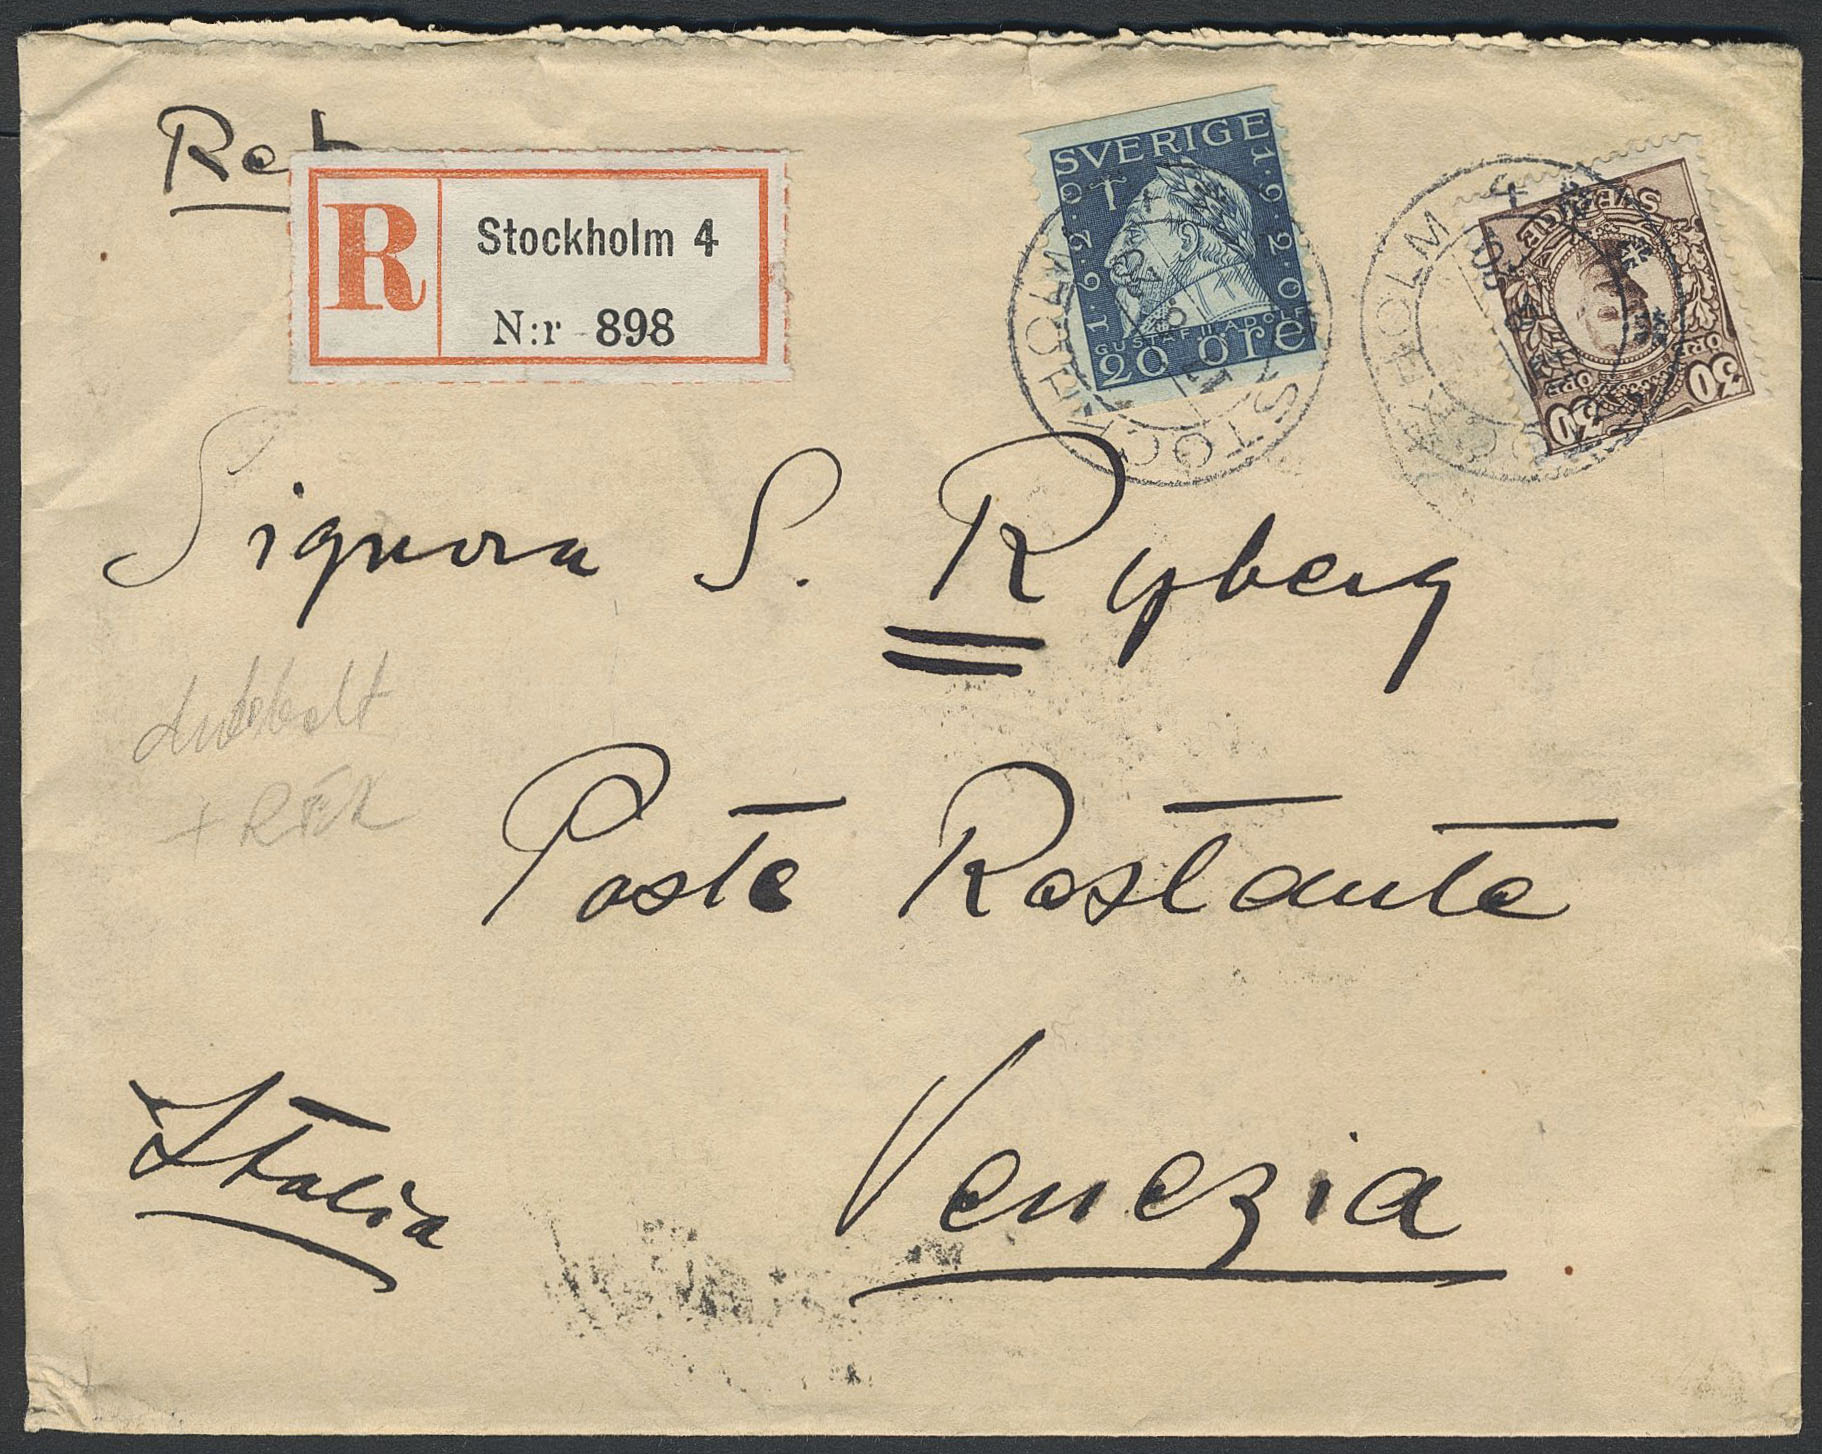 R Stockholm 4
N:r 898
SVERIGE
1620 1920
GUSTAF II ADOLF
20 ÖRE
SVERIGE
30 ÖRE ÖRE 30
STOCKHOLM
STOCKHOLM 4
Signora S. Ryberg
dubbelt
+ REK
Poste Restante
Italia
Venezia